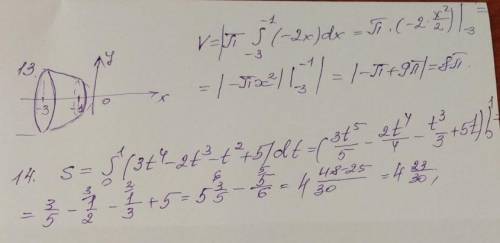 V=|π ∫₋₃⁻¹ (-2x)dx = π·(-2 x²/2)|₋₃⁻¹ =
13. y
= |-πx²| |₋₃⁻¹ = |-π+9π| = 8π.
-3 -1 0 x
14. S = ∫₀¹ (3t⁴-2t³-t²+5)dt = (3t⁵/5 - 2t⁴/4 - t³/3 + 5t)|₀¹ =
= 3/5 - 1/2 - 1/3 + 5 = 5 3/5 - 5/6 = 4 (48-25)/30 = 4 23/30,